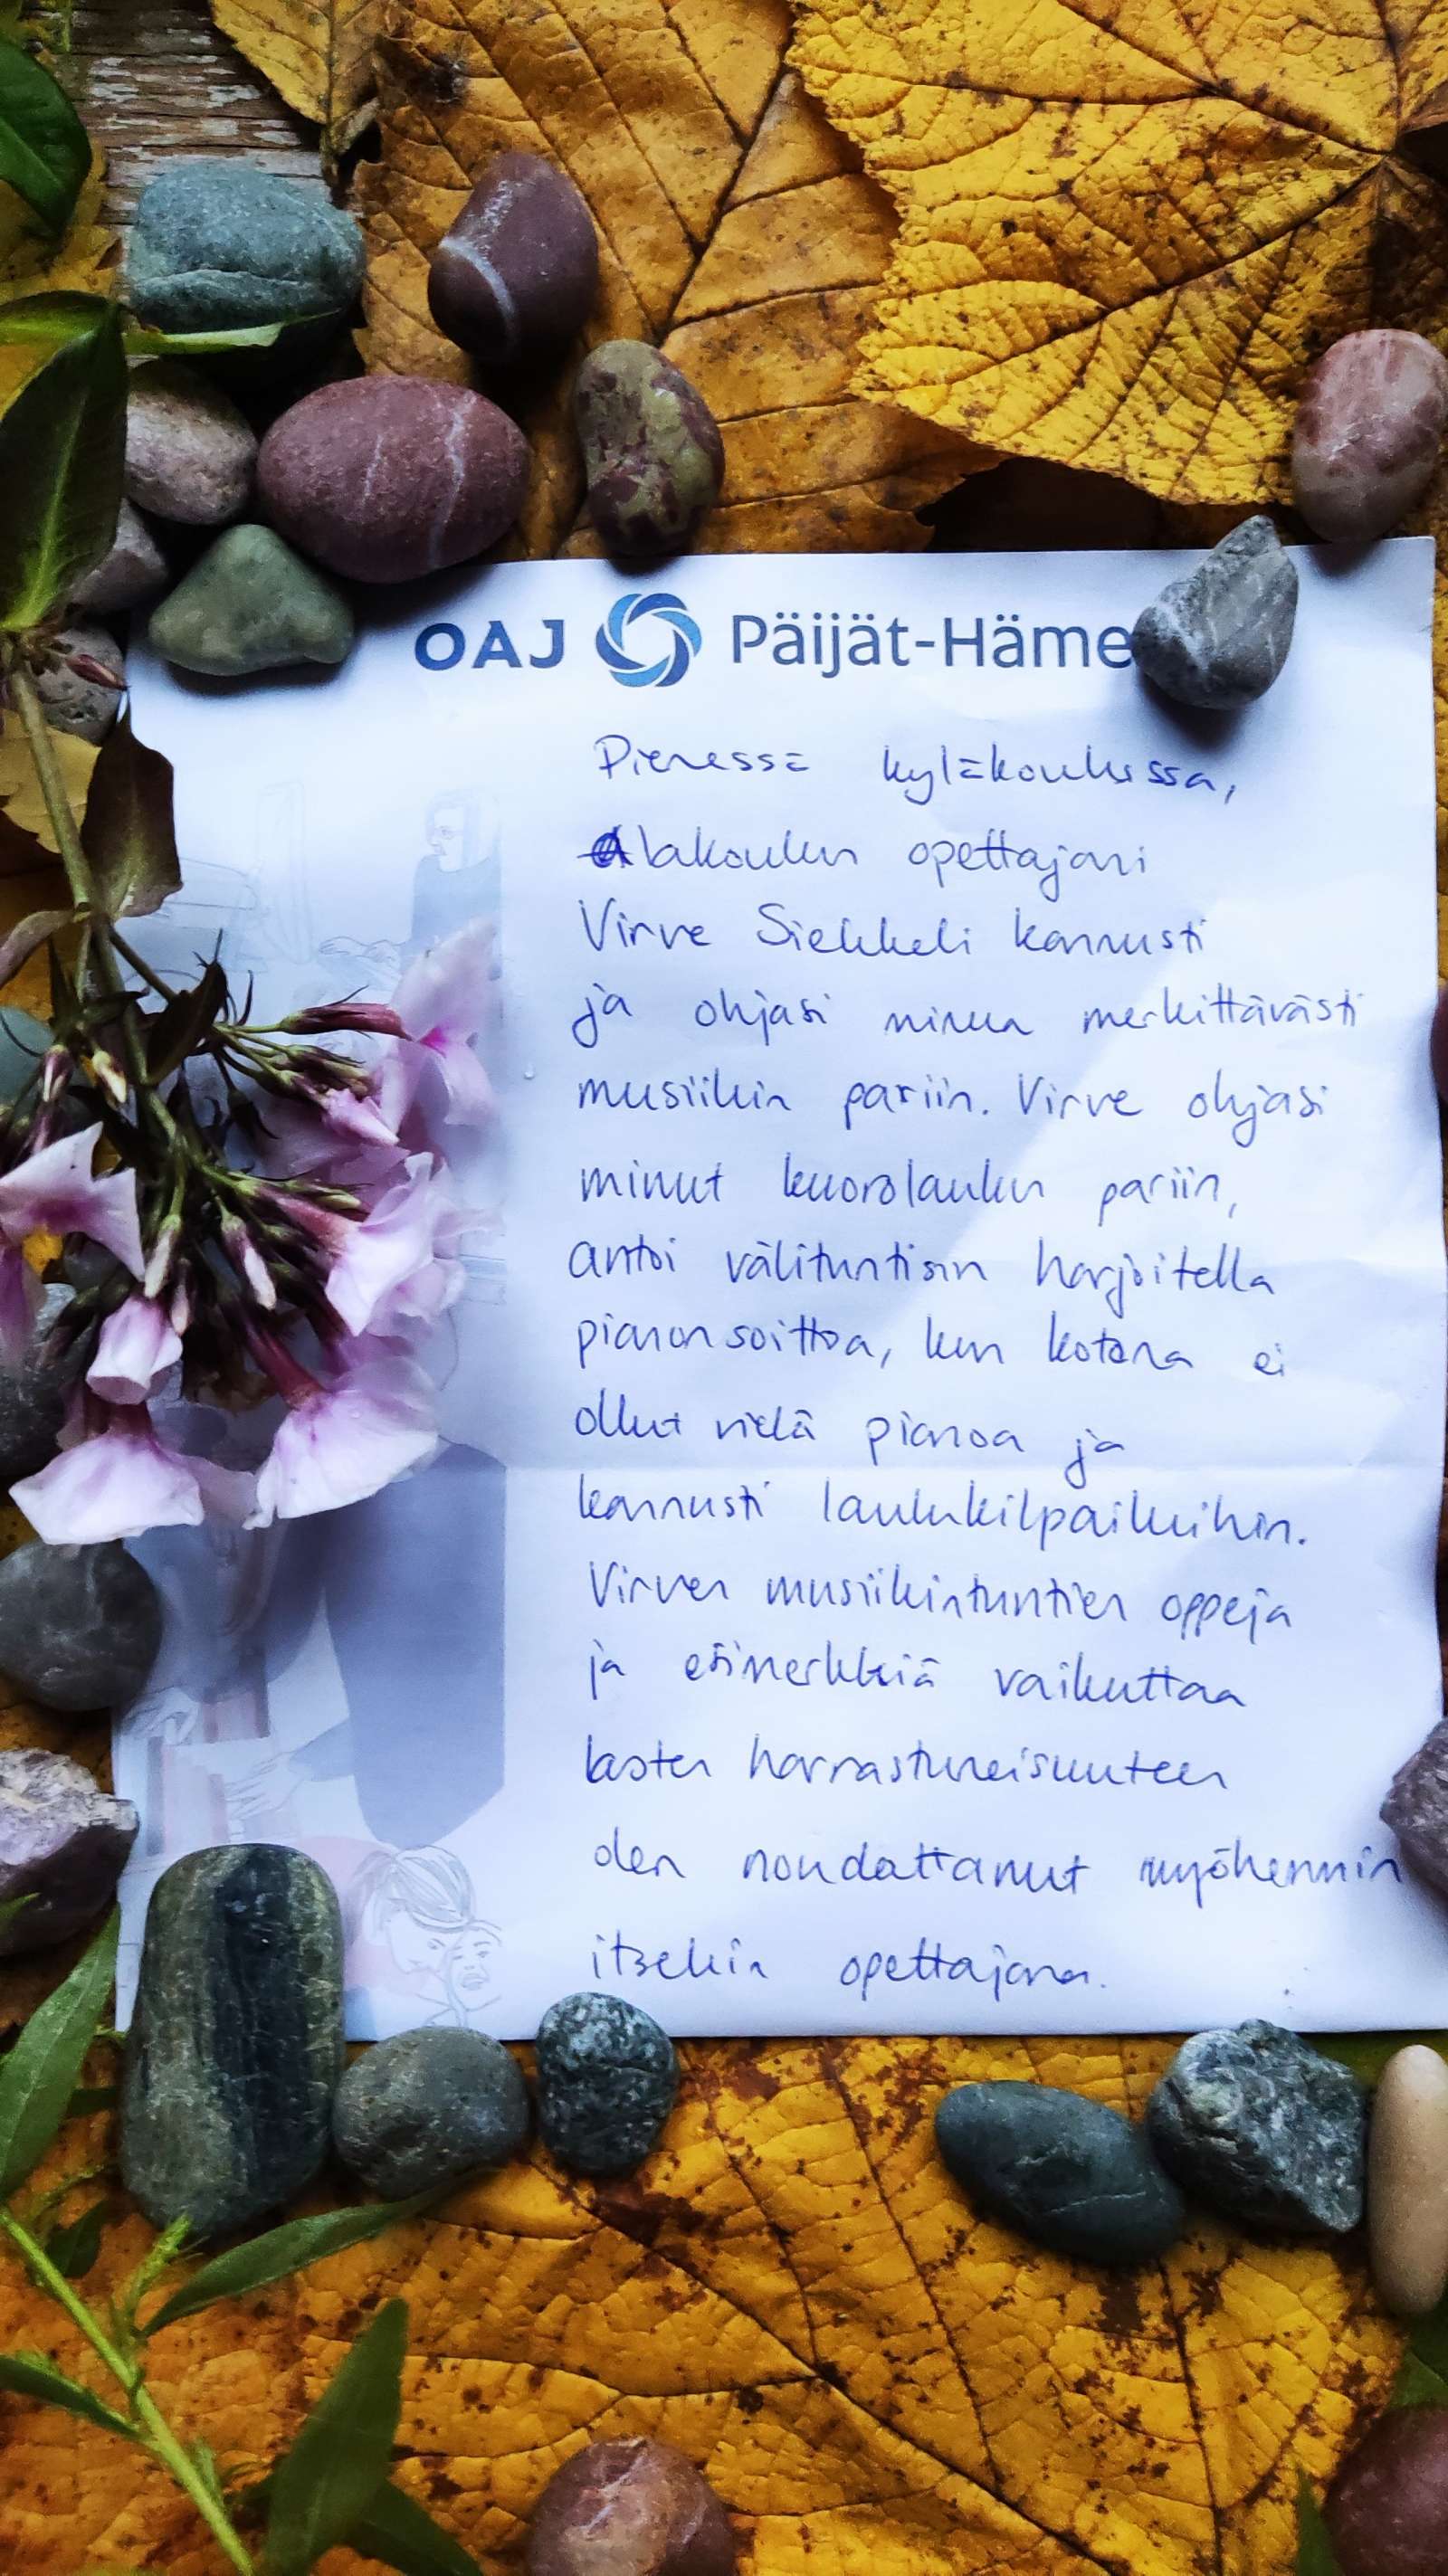 OAJ Päijät-Häme
Pienessä kyläkoulussa,
alakoulun opettajani
Virve Siekkeli kannusti
ja ohjasi minua merkittävästi
musiikin pariin. Virve ohjasi
minut kuorolaulun pariin,
antoi välituntisin harjoitella
pianonsoittoa, kun kotona ei
ollut vielä pianoa ja
kannusti laulukilpailuihin.
Virven musiikintuntien oppeja
ja esimerkkiä vaikuttaa
lasten harrastuneisuuteen
olen noudattanut myöhemmin
itsekin opettajana.